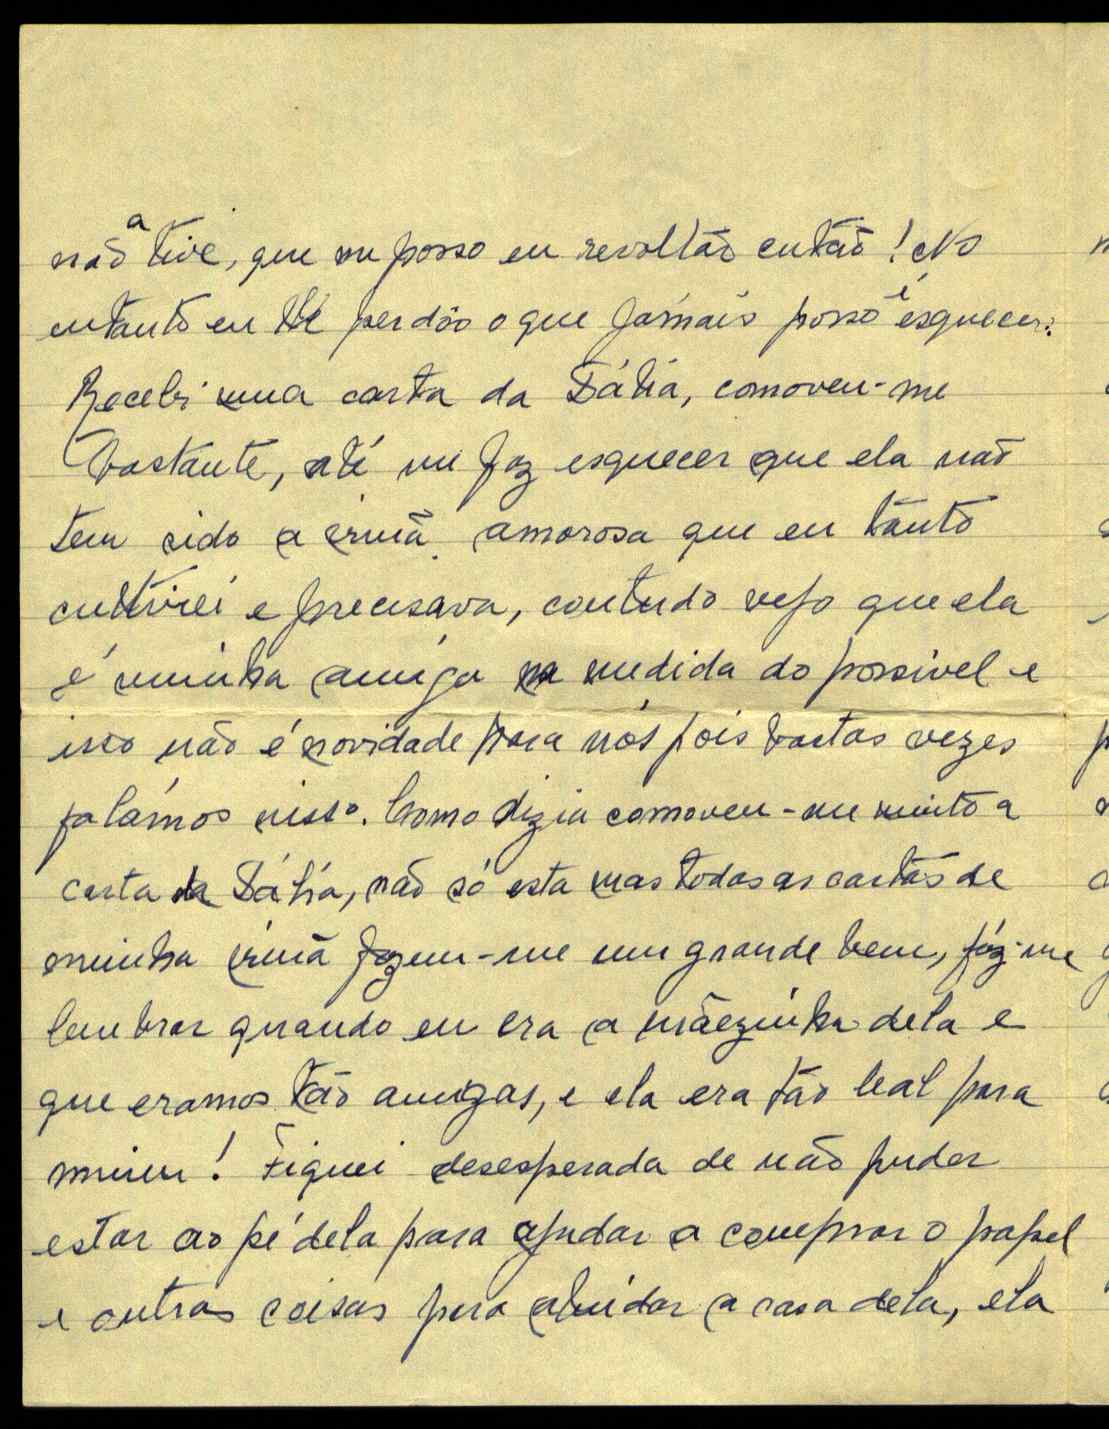 não a tive, que me posso eu revoltão então! No
entanto eu perdôo o que jámais posso é esquecer.
Recebi uma carta da Dália, comoveu-me
bastante, até me faz esquecer que ela não
tem sido a irmã amorosa que eu tanto
cultivei e precisava, contudo vejo que ela
é minha amiga na medida do possivel e
isso não é novidade para nós pois bastas vezes
falámos nisso. Como dizia comoveu-me muito a
carta da Dália, não só esta mas todas as cartas de
minha irmã fazem-me um grande bem, fáz-me
lembrar quando eu era a mãezinha dela e
que eramos tão amigas, e ela era tão leal para
mim! Fiquei desesperada de não puder
estar ao pé dela para ajudar a comprar o papel
e outras coisas para alindar a casa dela, ela